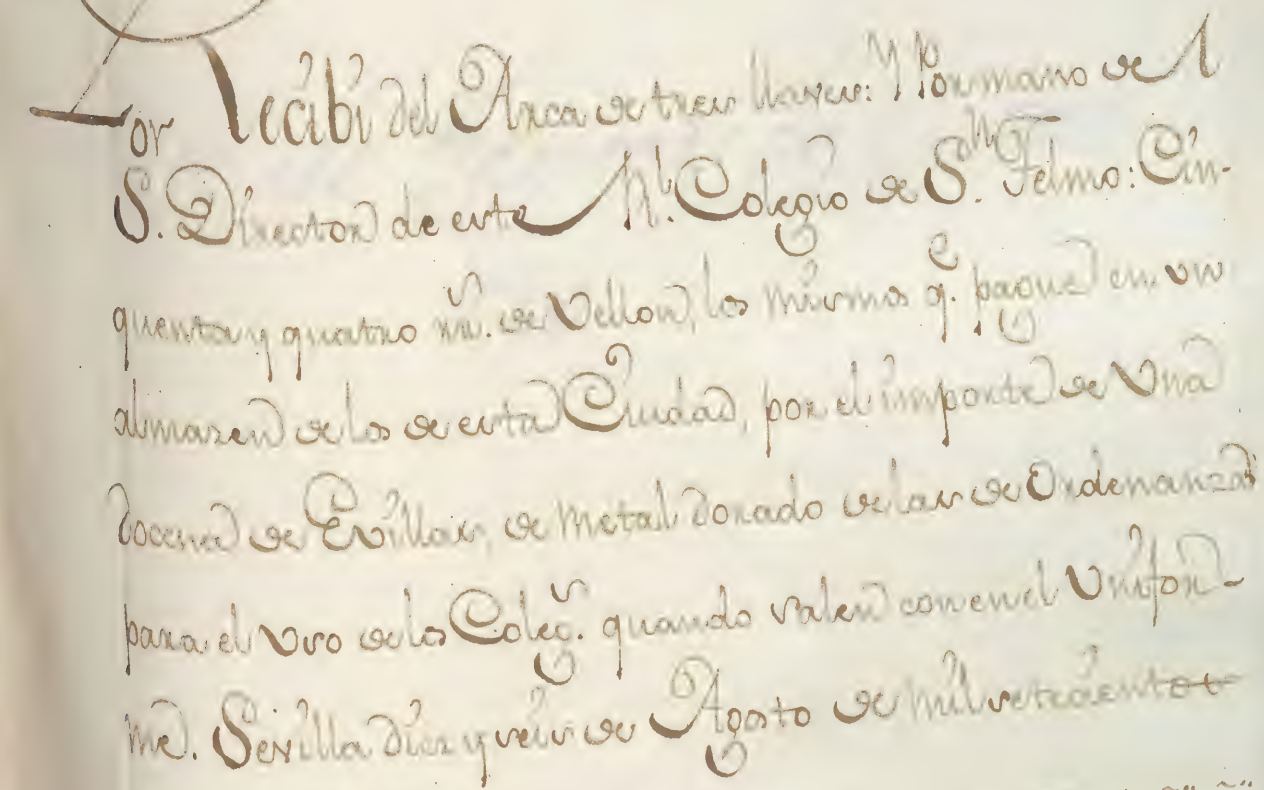 Recibi del Arca de tres llaves: Y Por mano de l
S.or Director de este Rl. Colegio de Sn. Telmo: Cin-
quenta y quatro rrs. de Vellon, los mismos qe. pagué en un
almazen de los de esta Ciudad, por el importe de Una
docena de Evillas, de metal dorado de las de Ordenanza
para el Uso de los Colegs. quando salen con en el Unifor-
me. Sevilla diez y seis de Agosto de mil setecient